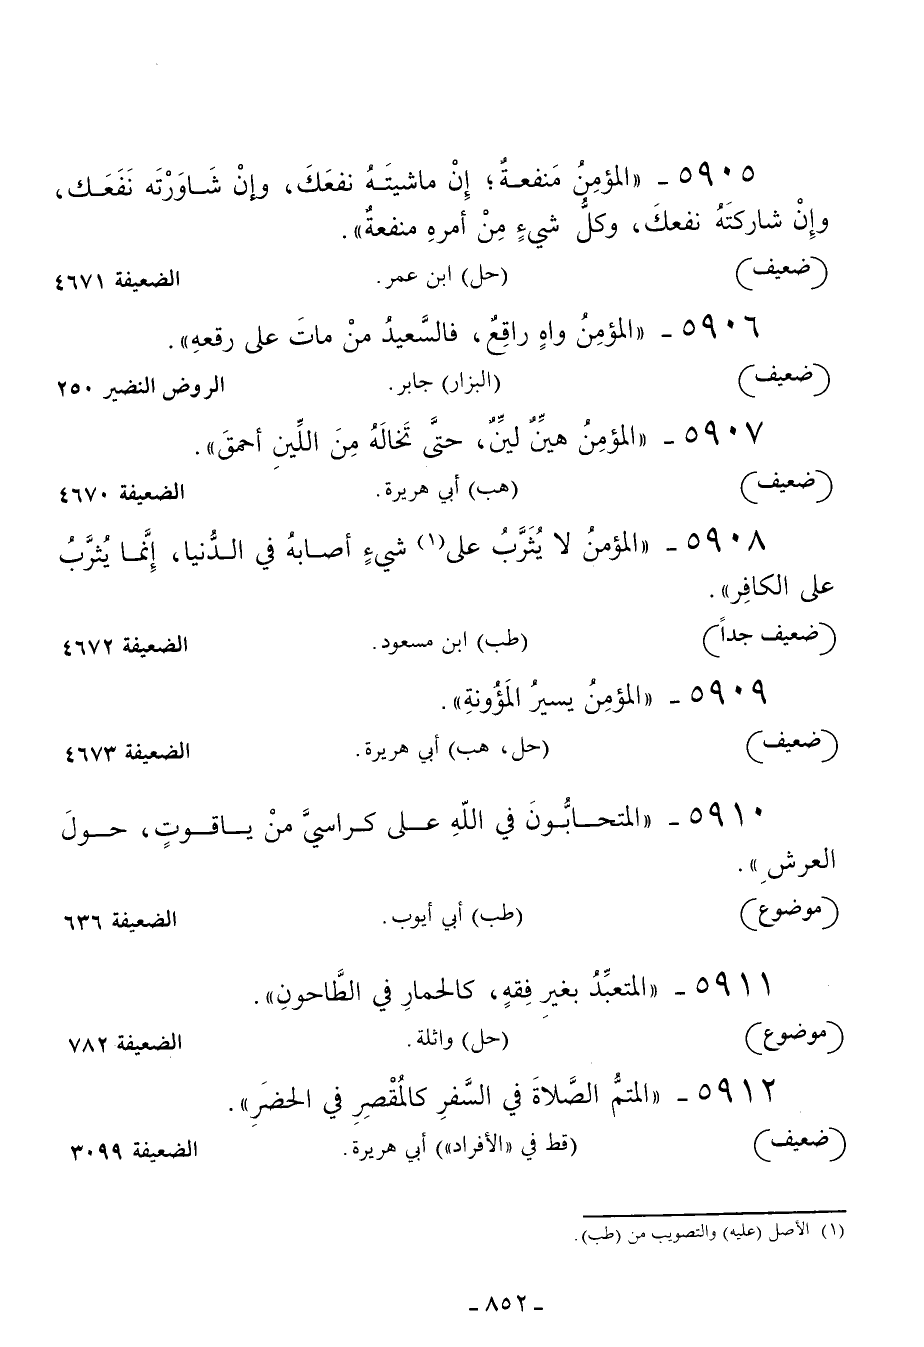 ٥٩٠٥ ـ «المؤمِنُ مَنفعـةٌ؛ إِنْ ماشيتَـهُ نفعَكَ، وإنْ شَـاوَرْتَه نَفَعَـك،
وإِنْ شاركتَهُ نفعكَ، وكلُّ شيءٍ مِنْ أمرهِ منفعةٌ».
(ضعيف) (حل) ابن عمر. الضعيفة ٤٦٧١
٥٩٠٦ ـ «المؤمِنُ واهٍ راقِعٌ، فالسَّعيدُ منْ ماتَ على رقعهِ».
(ضعيف) (البزار) جابر. الروض النضير ٢٥٠
٥٩٠٧ ـ «المؤمِنُ هيِّنٌ ليِّنٌ، حتَّى تَخالَهُ مِنَ اللِّينِ أحمقَ».
(ضعيف) (هب) أبي هريرة. الضعيفة ٤٦٧٠
٥٩٠٨ ـ «المؤمنُ لا يُثَرَّبُ على(١) شيءٍ أصـابهُ في الـدُّنيا، إِنَّمـا يُثرَّبُ
على الكافِر».
(ضعيف جداً) (طب) ابن مسعود. الضعيفة ٤٦٧٢
٥٩٠٩ ـ «المؤمِنُ يسيرُ المَؤُونةِ».
(ضعيف) (حل، هب) أبي هريرة. الضعيفة ٤٦٧٣
٥٩١٠ ـ «المتحـابُّـونَ في اللّهِ عـلى كـراسيَّ منْ يـاقـوتٍ، حـولَ
العرشِ».
(موضوع) (طب) أبي أيوب. الضعيفة ٦٣٦
٥٩١١ ـ «المتعبِّدُ بغيرِ فِقهٍ، كالحمارِ في الطَّاحونِ».
(موضوع) (حل) واثلة. الضعيفة ٧٨٢
٥٩١٢ ـ «المتمُّ الصَّلاةَ في السَّفرِ كالمُقْصرِ في الحضَرِ».
(ضعيف) (قط في «الأفراد») أبي هريرة. الضعيفة ٣٠٩٩
(١) الأصل (عليه) والتصويب من (طب).
ـ ٨٥٢ ـ